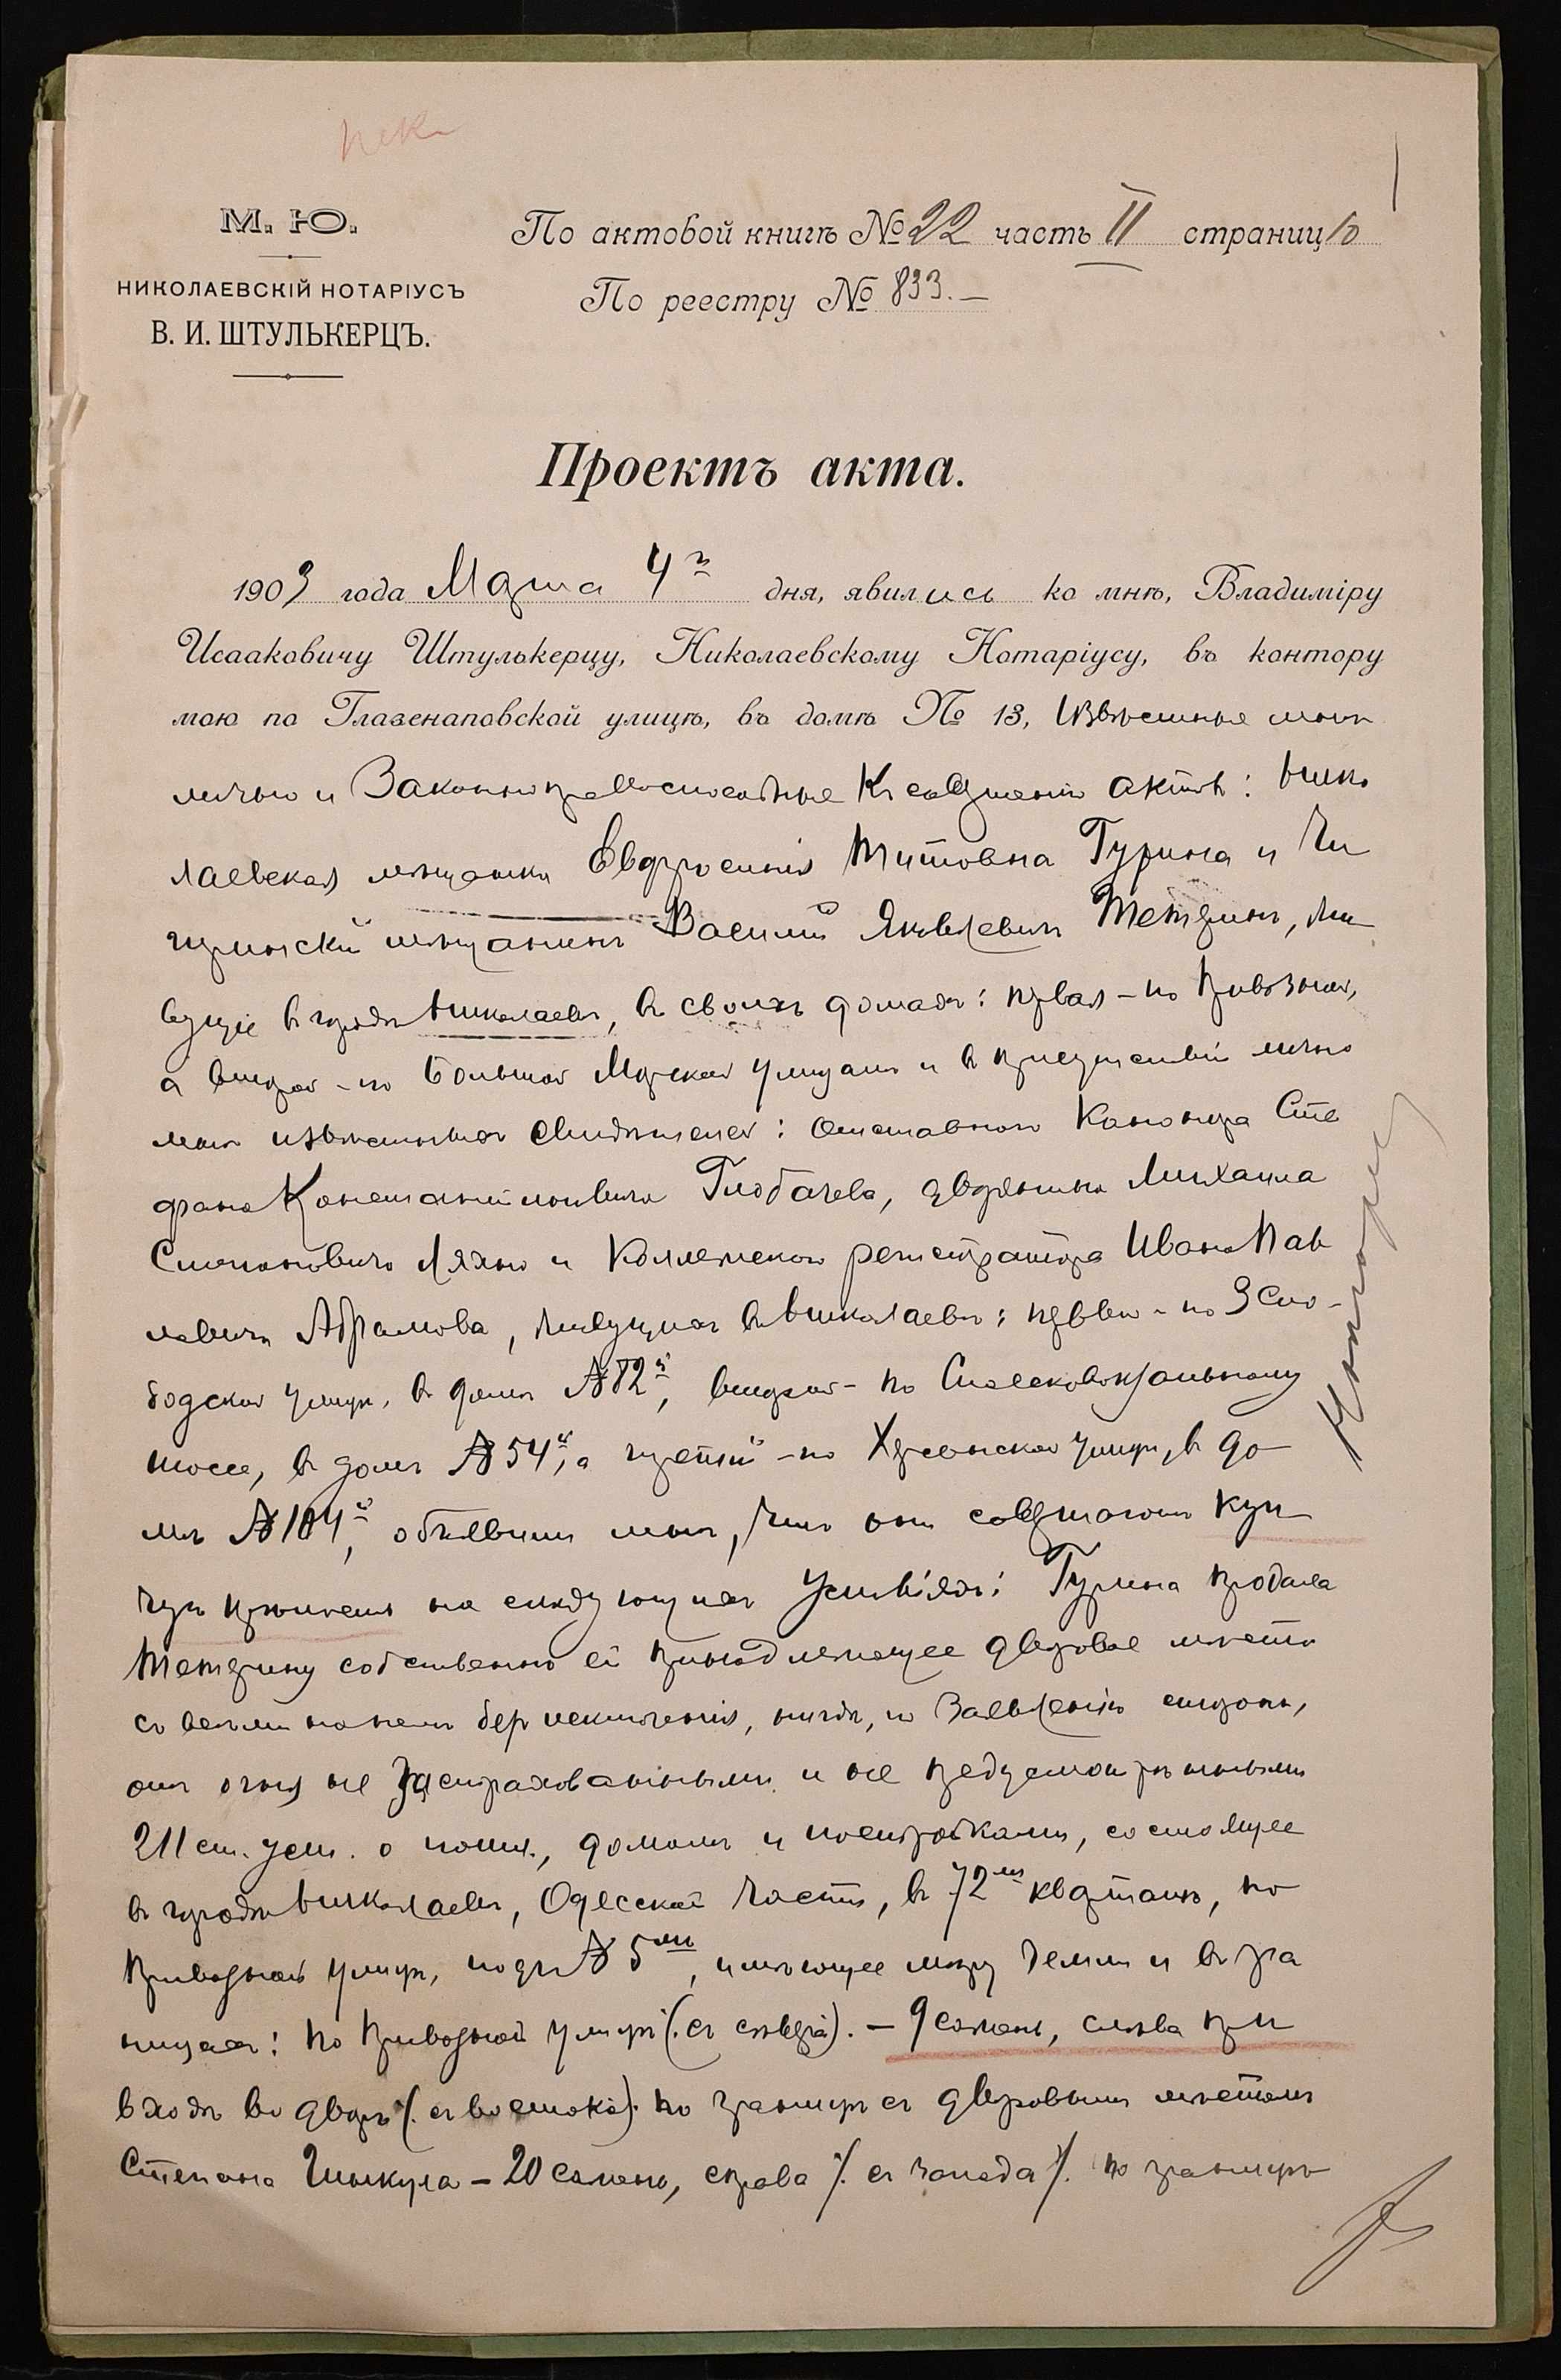 М. Ю.
НИКОЛАЕВСКІЙ НОТАРІУСЪ
В. И. ШТУЛЬКЕРЦЪ.
По актовой книгѣ № 22 часть II страниц 10
По реестру № 833.—
Проектъ акта.
1903 года Марта 4го дня, явились ко мнѣ, Владиміру
Исааковичу Штулькерцу, Николаевскому Нотаріусу, въ контору
мою по Глазенаповской улицѣ, въ домѣ № 13, Извѣстные мнѣ
лично и Законноправоспособные Къ совершенію актовъ: Нико
лаевская мѣщанка Евфросинія Титовна Гурина и Чи
гиринскій мѣщанинъ Василій Яковлевичъ Тетеринъ, Жи
вущіе въ городѣ Николаевѣ, въ своихъ домахъ: первая - по Привозной,
а второй - по Большой Морской улицамъ и въ присутствіи лично
мнѣ извѣстныхъ свидѣтелей: отставного Канонира Сте
фана Константиновича Глобачева, дворянина Михаила
Степановича Ляхно и Коллежскаго регистратора Ивана Пав
ловича Абрамова, живущихъ въ Николаевѣ: первый - по 3 Сло-
бодской улицѣ, въ домѣ № 82й, второй - по Спасскому
шоссе, въ домѣ № 54й, а третій - по Херсонской улицѣ, въ до
мѣ № 104й, объявили мнѣ, что они совершаютъ куп
чую крѣпость на слѣдующихъ условіяхъ: Гурина продала
Тетерину собственно ей принадлежащее дворовое мѣсто
со всѣми на немъ безъ исключенія, нигдѣ, по Заявленію сторонъ,
отъ огня не застрахованными и не предусмотрѣнными
211 ст. уст. о пошл., домомъ и постройками, состоящее
въ городѣ Николаевѣ, Одесской части, въ 72мъ кварталѣ, по
Привозной улицѣ, подъ № 5мъ, имѣющее мѣру земли и въ гра
ницахъ: по Привозной улицѣ (съ сѣвера). - 9 сажень, слѣва при
входѣ во дворъ (съ востока). по границѣ съ дворовымъ мѣстомъ
Степана - 20 сажень, справа /. съ запада /. по границѣ